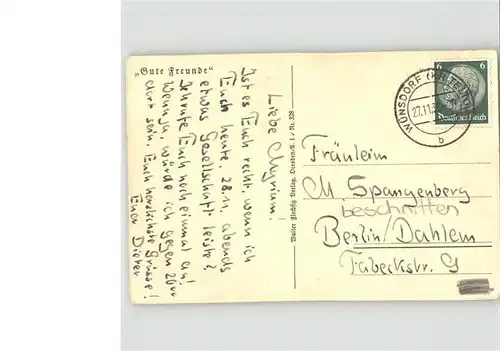 „Gute Freunde“
Liebe Myriam!
Ist es Euch recht, wenn ich
Euch heute, 28.11. abends
etwas Gesellschaft leiste?
Euch noch einmal an!
Wenn ja, würde ich gegen 20
dort sein. Euch herzlichste Grüsse!
Euer Dieter
Walter Flechsig Verlag, Dresden-A. 1 / Nr. 328
WÜNSDORF
27.11.
b
6 6
Deutsches Reich
Fräulein
M. Spangenberg
beschnitten
Berlin/Dahlem
Fabeckstr. 9